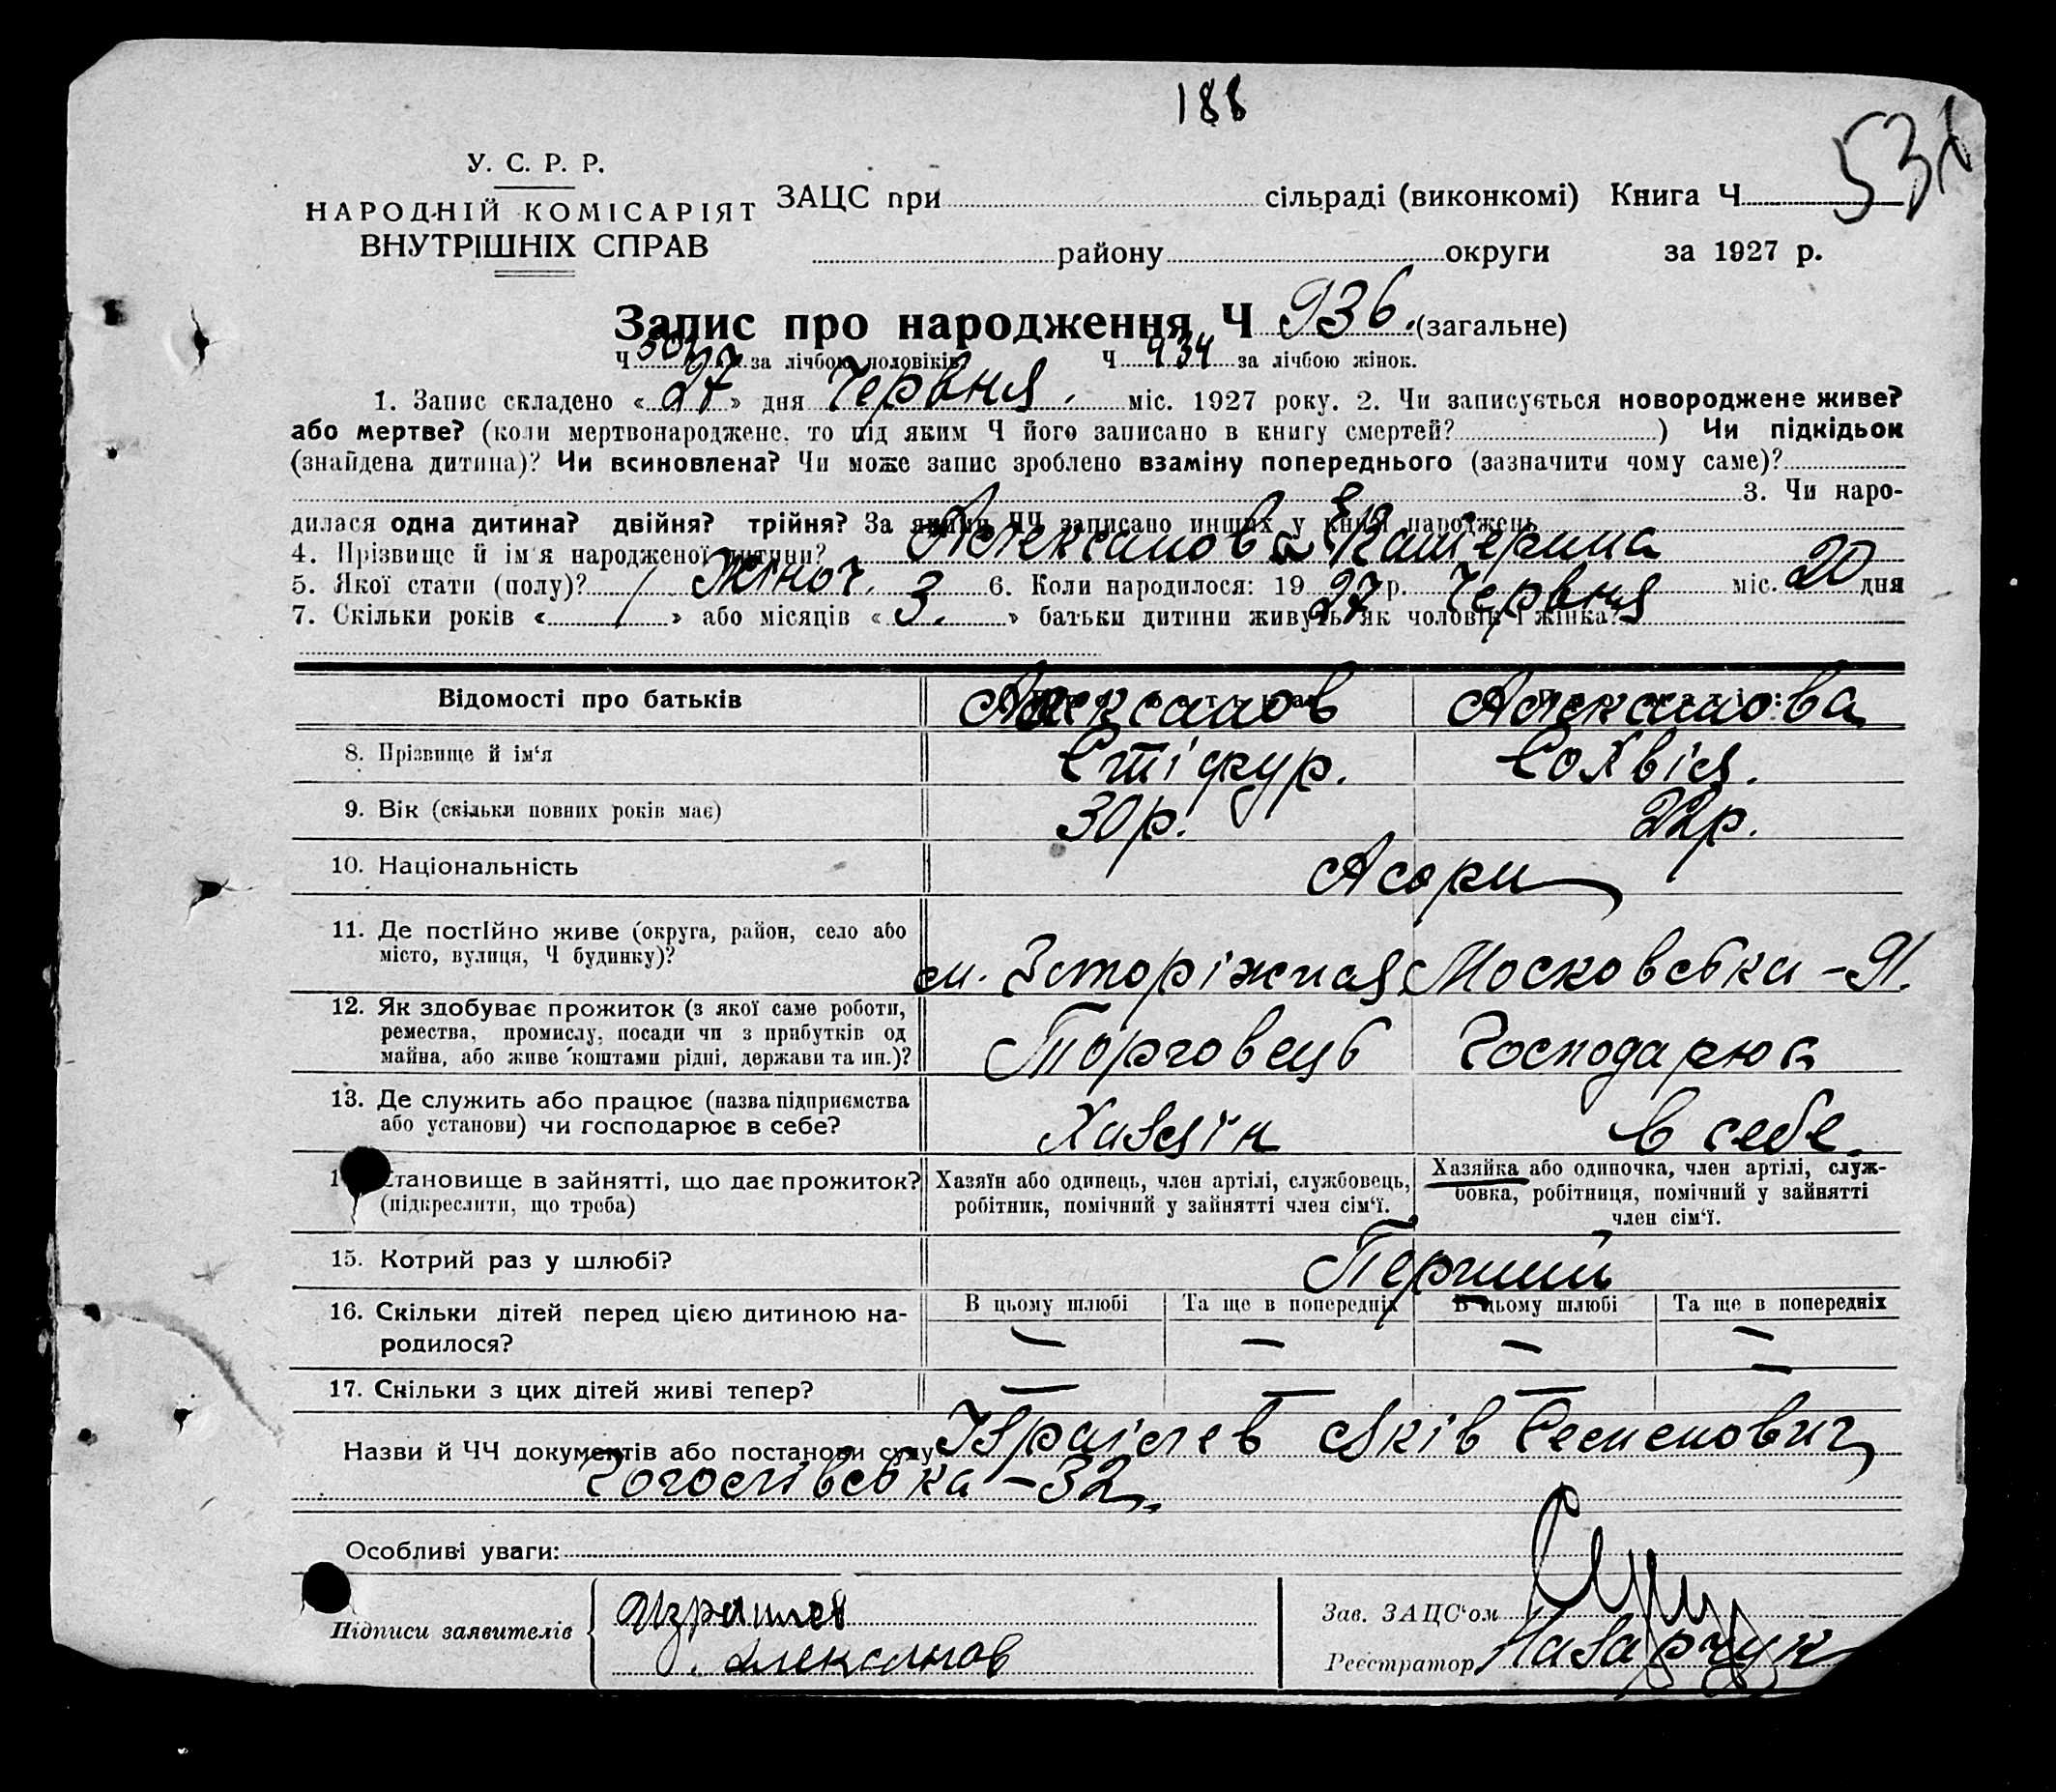 188
У. С. Р. Р.
НАРОДНІЙ КОМІСАРІЯТ
ВНУТРІШНІХ СПРАВ
ЗАЦС при сільраді (виконкомі) Книга Ч
району округи за 1927 р.
Запис про народження Ч 936. (загальне)
Ч за лічбою половіків. Ч 434 за лічбою жінок.
1. Запис складено «27» дня Червня міс. 1927 року. 2. Чи записується новороджене живе?
або мертве? (коли мертвонароджене, то під яким Ч його записано в книгу смертей? ) Чи підкідьок
(знайдена дитина)? Чи всиновлена? Чи може запис зроблено взаміну попереднього (зазначити чому саме)?
3. Чи наро-
дилася одна дитина? двійня? трійня? За якими ЧЧ записано инших у книзі народжень
4. Прізвище й ім'я народженої дитини? Алексанова Катерина
5. Якої стати (полу)? Жіноч. 6. Коли народилося: 1927 р. Червня міс. 20 дня
7. Скільки років « / » або місяців « 3. » батьки дитини живуть як чоловік і жінка?
Відомості про батьків Алексанов Алексанова
8. Прізвище й ім'я Стіфур. Софвія.
9. Вік (скільки повних років має) 30р. 22р.
10. Національність Асори
11. Де постійно живе (округа, район, село або
місто, вулиця, Ч будинку)?
м. Запоріжжя, Московська – 91.
12. Як здобуває прожиток (з якої саме роботи,
ремества, промислу, посади чи з прибутків од
майна, або живе коштами рідні, держави та ин.)?
Торговець Господарює
13. Де служить або працює (назва підприємства
або установи) чи господарює в себе?
Хазяїн в себе.
Становище в зайнятті, що дає прожиток?
(підкреслити, що треба)
Хазяїн або одинець, член артілі, службовець,
робітник, помічний у зайнятті член сім'ї.
Хазяйка або одиночка, член артілі, служ-
бовка, робітниця, помічний у зайнятті
член сім'ї.
15. Котрий раз у шлюбі? Перший
16. Скільки дітей перед цією дитиною на-
родилося?
В цьому шлюбі Та ще в попередніх В цьому шлюбі Та ще в попередніх
— — — —
17. Скільки з цих дітей живі тепер? — — — —
Назви й ЧЧ документів або постанови суду Ізраілев Яків Семенович
– 32.
Особливі уваги:
Підписи заявителів
Алексанов
Зав. ЗАЦС'ом
Реєстратор Назарчук